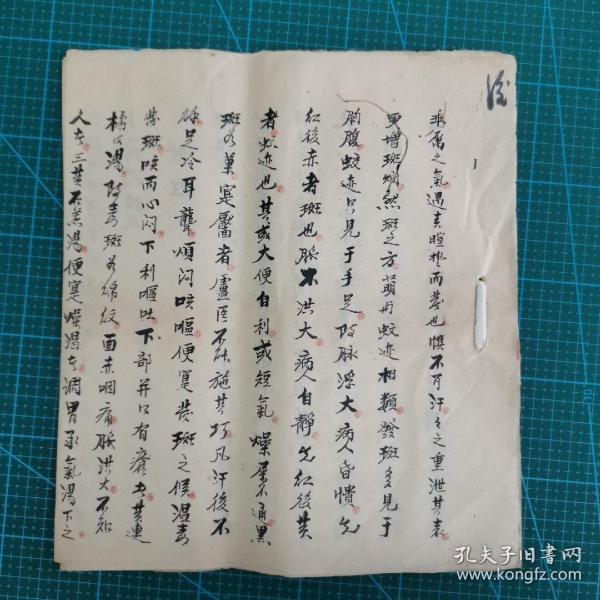 乖厲之氣遇春暄热而發也慎不可汗々之重泄其表
更增斑爛然斑之方萌与蚊迹相類發斑多見于
胸腹蚊迹只見于手足阳脉浮大病人昏憒先
红後赤者斑也脈不洪大病人自靜先红後黄
者蚊迹也其或大便自利或短氣燥屎不通黑
斑如菓寔靨者盧医不能施其巧凡汗後不
觧足冷耳聾煩闷咳嘔便是發斑之候温毒
發斑咳而心闷下利嘔吐下部并口有瘡者黄連
橘皮湯阳毒斑如綿紋面赤咽痛脈洪大不知
人者三黄石羔湯便寔燥渴者調胃承氣湯下之
孔夫子旧書网
www.kongfz.com